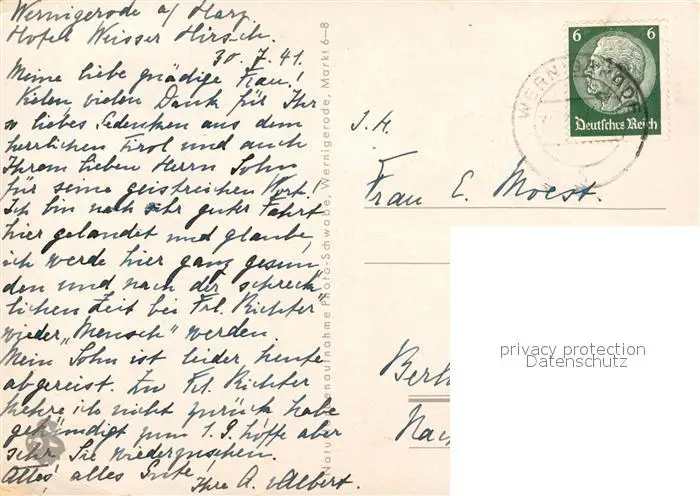 Wernigerode a/ Harz
Hotel Weisser Hirsch.
30. 7. 41.
Meine liebe gnädige Frau!
Vielen vielen Dank für Ihr
so liebes Gedenken aus dem
herrlichen Tirol und auch
Ihrem lieben Herrn Sohn
für seine geistreichen Wort!
Ich bin nach sehr guter Fahrt
hier gelandet und glaube,
ich werde hier ganz gesun-
den und nach der schreck-
lichen Zeit bei Frl. Richter
wieder „Mensch" werden.
Mein Sohn ist leider heute
abgereist. Zu Frl. Richter
kehre ich nicht zurück habe
gekündigt zum 1. 9. hoffe aber
sehr Sie wiederzusehen.
Alles, alles Gute!
Ihre A. Albert.
Naturaufnahme Photo-Schwabe, Wernigerode, Markt 6–8
6 6
Deutsches Reich
WERNIGERODE
I. H.
Frau E. Moest.
Berl
Nac
privacy protection
Datenschutz